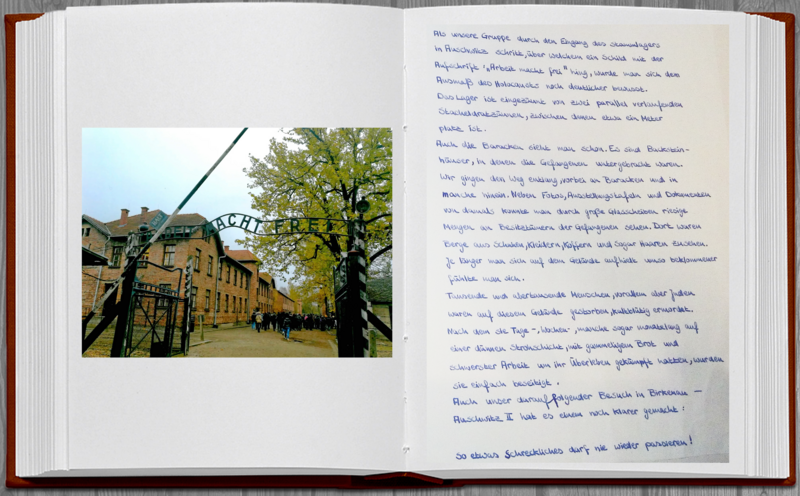 MACHT FREI
Als unsere Gruppe durch den Eingang des Stammlagers
in Auschwitz schritt, über welchem ein Schild mit der
Aufschrift: „Arbeit macht frei" hing, wurde man sich dem
Ausmaß des Holocausts noch deutlicher bewusst.
Das Lager ist eingezäunt von zwei parallel verlaufenden
Stacheldrahtzäunen, zwischen denen etwa ein Meter
platz ist.
Auch die Baracken sieht man schon. Es sind Backstein-
häuser, in denen die Gefangenen untergebracht waren.
Wir gingen den Weg entlang, vorbei an Baracken und in
manche hinein. Neben Fotos, Ausstellungstafeln und Dokumenten
von damals konnte man durch große Glasscheiben riesige
Mengen an Besitztümern der Gefangenen sehen. Dort waren
Berge aus Schuhen, Kleidern, Koffern und sogar Haaren zu sehen.
Je länger man sich auf dem Gelände aufhielt umso beklommener
fühlte man sich.
Tausende und abertausende Menschen, vorallem aber Juden
waren auf diesem Gelände gestorben, kaltblütig ermordet.
Nach dem sie Tage-, Wochen-, manche sogar monatelang auf
einer dünnen Strohschicht, mit gammeligem Brot und
schwerster Arbeit um ihr Überleben gekämpft hatten, wurden
sie einfach beseitigt.
Auch unser darauf folgender Besuch in Birkenau –
Auschwitz II hat es einem noch klarer gemacht:
so etwas Schreckliches darf nie wieder passieren!